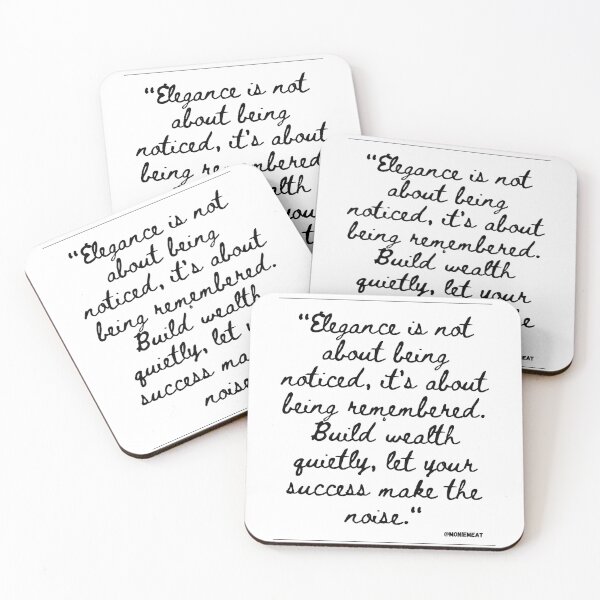 “Elegance is not
about being
noticed, it's about
being remembered
wealth
“Elegance is not
about being
noticed, it's about
being remembered.
Build wealth
quietly, let your
“Elegance is not
about being
noticed, it's about
being remembered.
Build wealth
quietly, let
success make
noise
“Elegance is not
about being
noticed, it's about
being remembered.
Build wealth
quietly, let your
success make the
noise.“
@MONIEMEAT